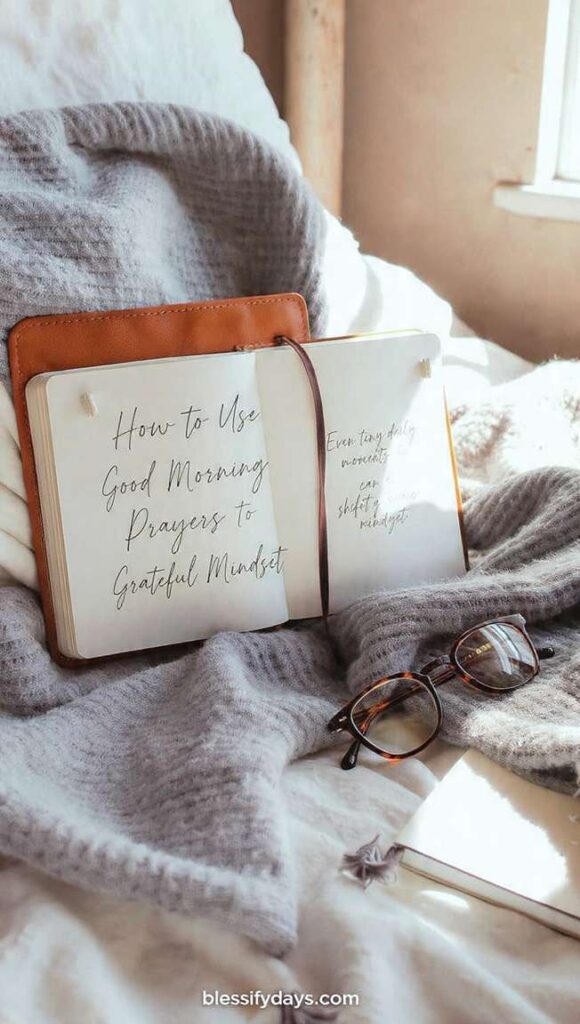 How to Use
Good Morning
Prayers to
Grateful Mindset
Even tiny daily
moments
can
mindget.
blessifydays.com